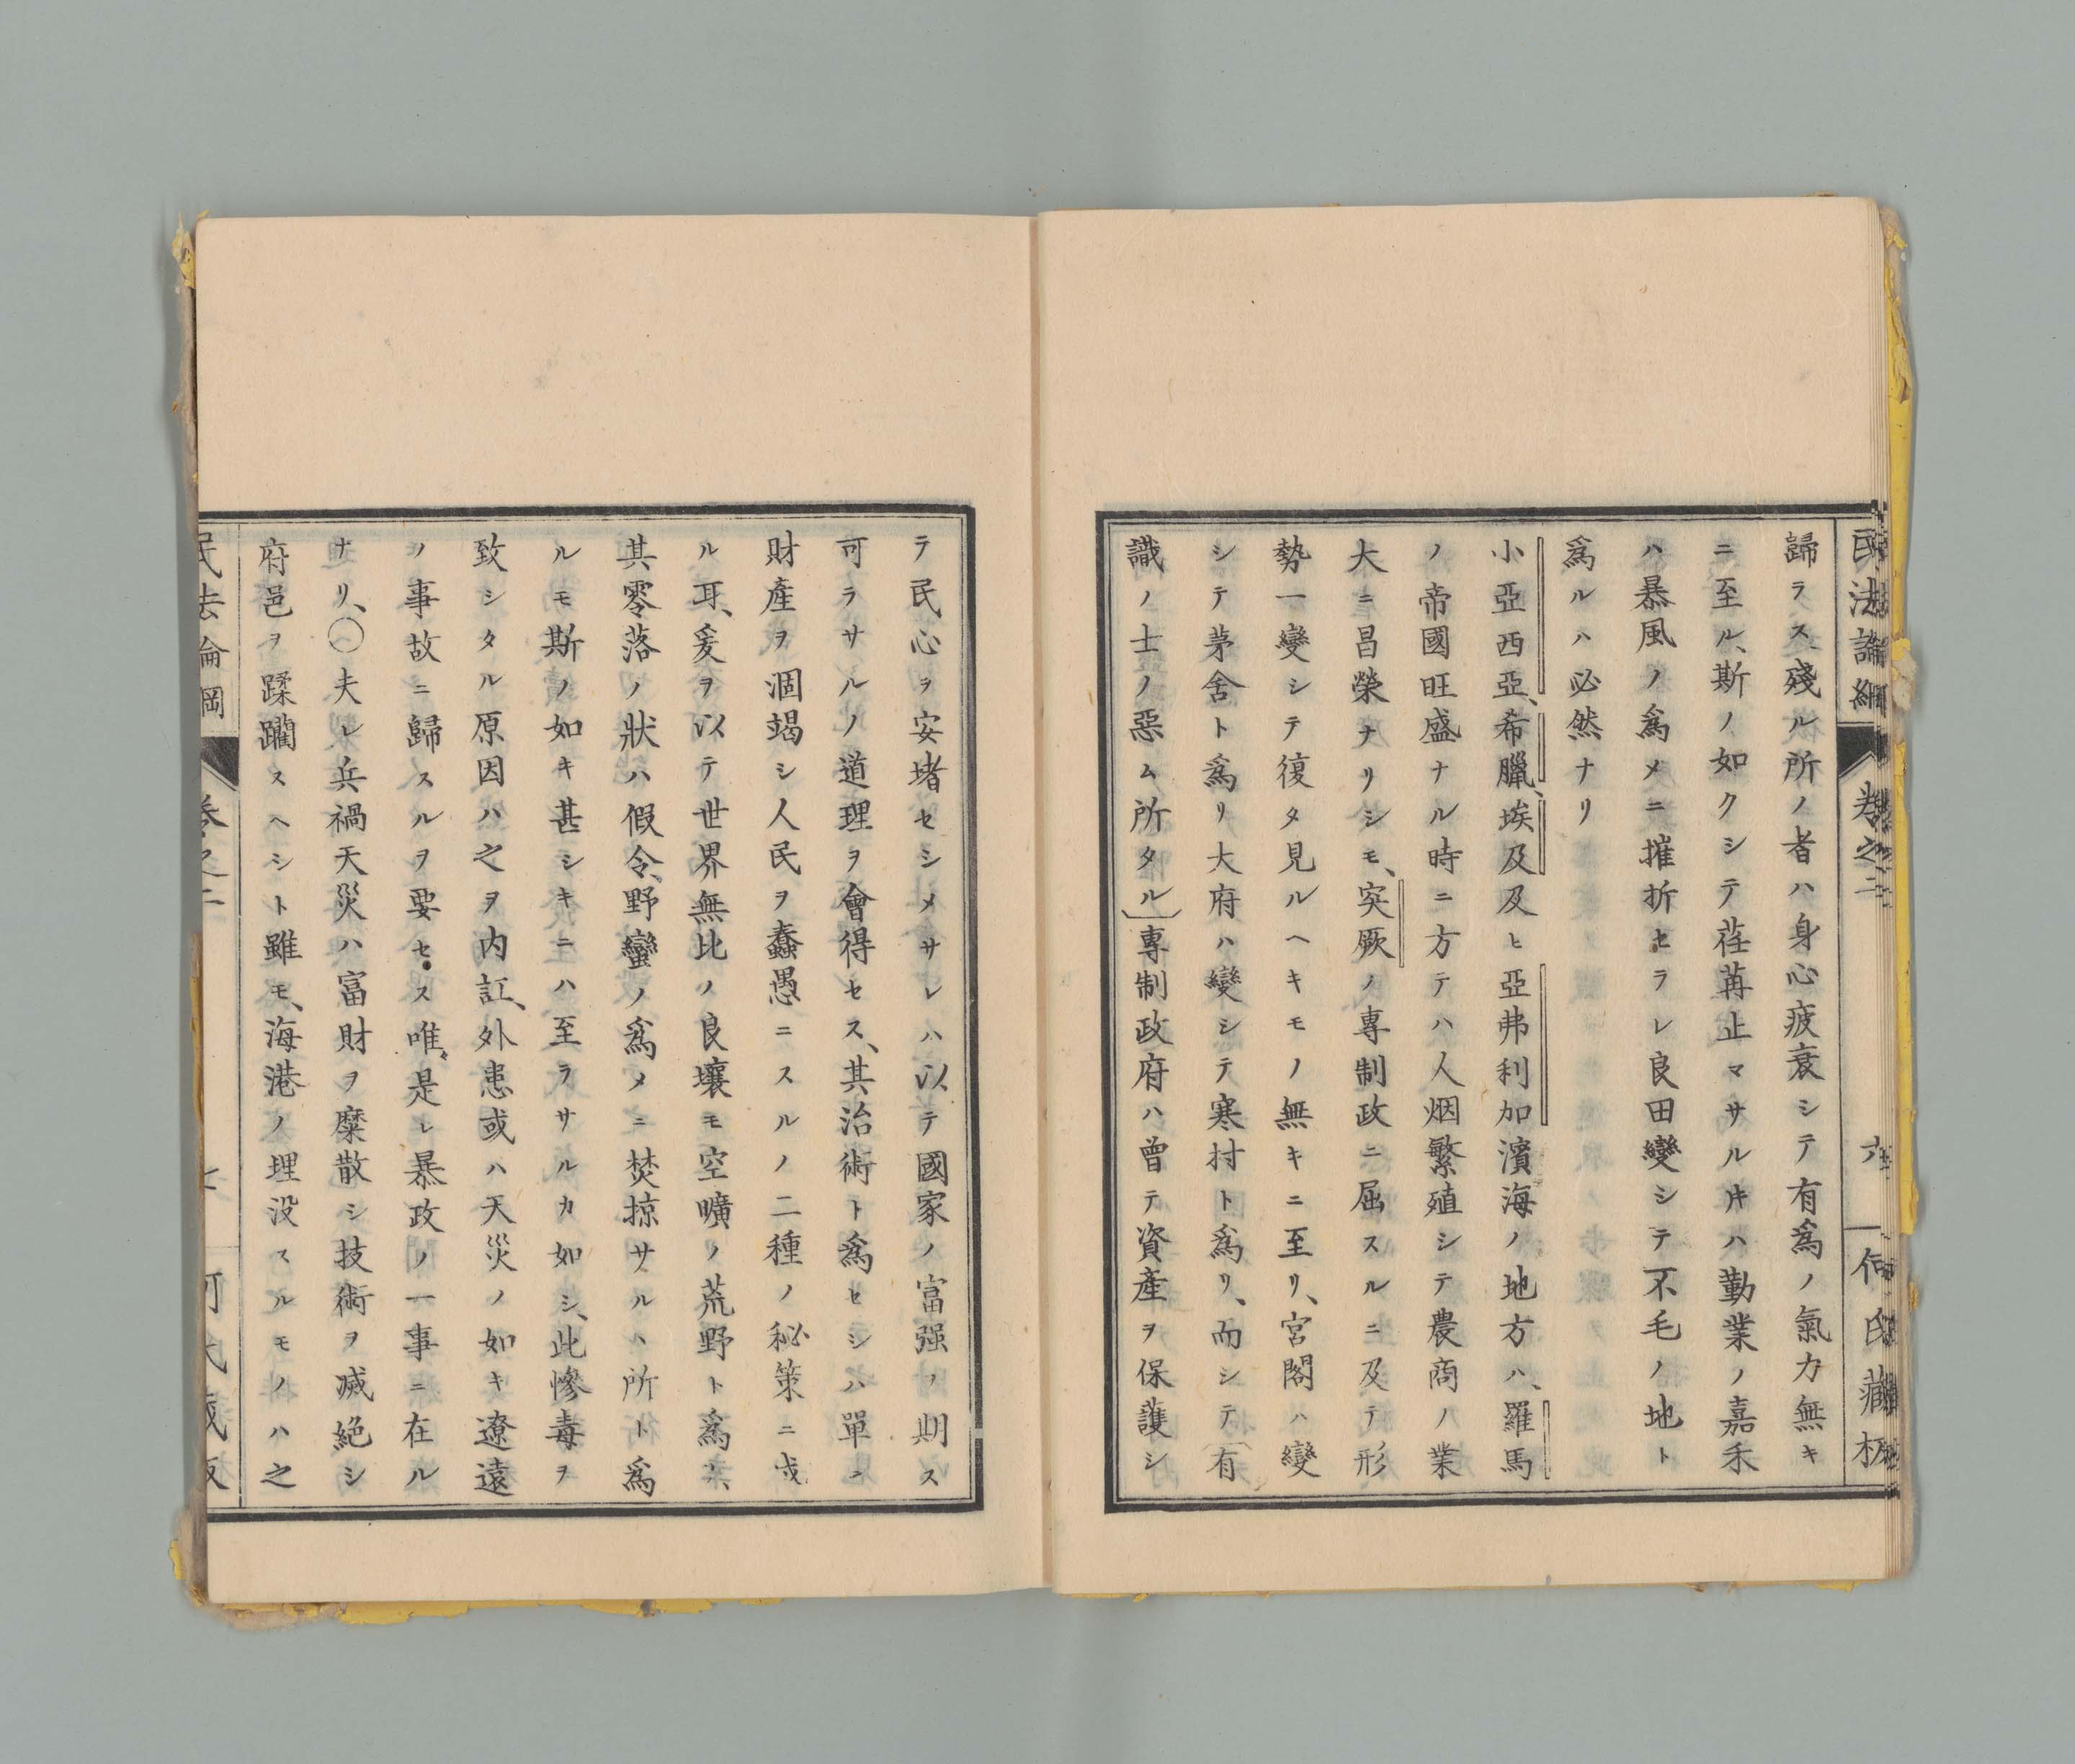 民法論綱 卷之二 六 何氏藏板
歸ラス殘ル所ノ者ハ身心疲衰シテ有爲ノ氣力無キ
ニ至ル、斯ノ如クシテ荏苒止マサル片ハ勤業ノ嘉禾
ハ暴風ノ爲メニ摧折セラレ良田變シテ不毛ノ地ト
爲ルハ必然ナリ
小亞西亞、希臘、埃及及ヒ亞弗利加濱海ノ地方ハ、羅馬
ノ帝國旺盛ナル時ニ方テハ人烟繁殖シテ農商ノ業
大ニ昌榮ナリシモ、突厥ノ專制政ニ屈スルニ及テ形
勢一變シテ復タ見ルヘキモノ無キニ至リ、宮閣ハ變
シテ茅舍ト爲リ大府ハ變シテ寒村ト爲リ、而シテ〔有
識ノ士ノ惡ム所タル〕專制政府ハ曾テ資產ヲ保護シ
テ民心ヲ安堵セシメサレハ以テ國家ノ富强ヲ期ス
可ラサルノ道理ヲ會得セス、其治術ト爲セシハ單ニ
財產ヲ涸竭シ人民ヲ蠢愚ニスルノ二種ノ秘策ニ或
ル耳、爰ヲ以テ世界無比ノ良壤モ空曠ノ荒野ト爲リ、
其零落ノ狀ハ假令野蠻ノ爲メニ焚掠サルヽ所ト爲
ルモ斯ノ如キ甚シキニハ至ラサルカ如シ、此慘毒ヲ
致シタル原因ハ之ヲ内訌、外患或ハ天災ノ如キ遼遠
ノ事故ニ歸スルヲ要セス唯是レ暴政ノ一事ニ在ル
ナリ、○夫レ兵禍天災ハ富財ヲ糜散シ技術ヲ滅絕シ
府邑ヲ蹂躙スヘシト雖モ、海港ノ埋没スルモノハ之
民法論綱 卷之二 七 何氏藏板